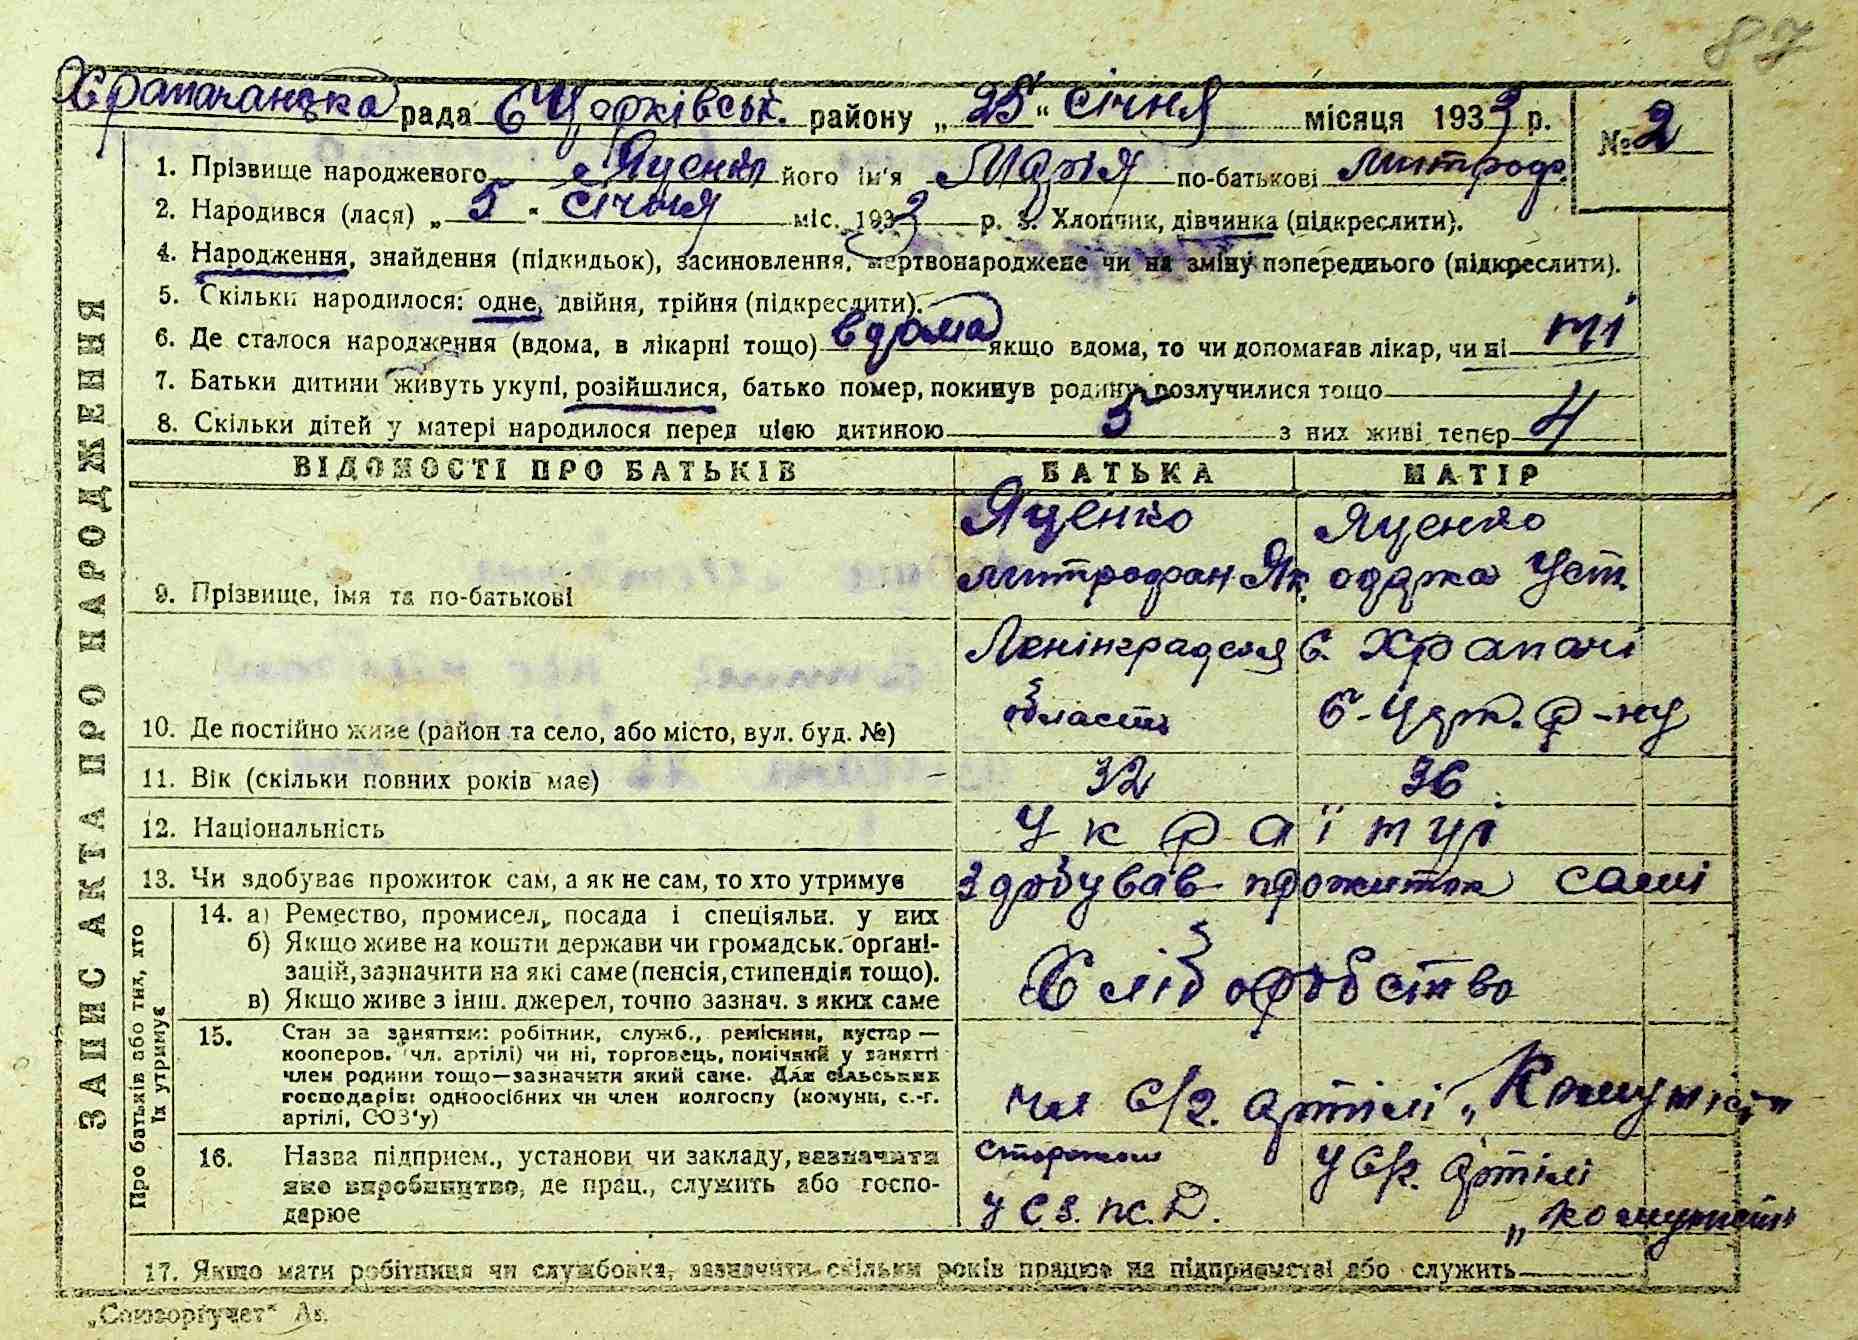 87
Храпачанська рада БЦерківськ. району „25" січня місяця 1933 р.
№ 2
1. Прізвище народженого Яценко його ім'я Марія по-батькові Митроф.
2. Народився (лася) „5" січня міс. 1933 р. 3. Хлопчик, дівчинка (підкреслити).
4. Народження, знайдення (підкидьок), засиновлення, мертвонароджене чи на зміну попереднього (підкреслити).
5. Скільки народилося: одне, двійня, трійня (підкреслити).
6. Де сталося народження (вдома, в лікарні тощо) вдома якщо вдома, то чи допомагав лікар, чи ні ні
7. Батьки дитини живуть укупі, розійшлися, батько помер, покинув родину, розлучилися тощо
8. Скільки дітей у матері народилося перед цією дитиною 5 з них живі тепер 4
ЗАПИС АКТА ПРО НАРОДЖЕННЯ
ВІДОМОСТІ ПРО БАТЬКІВ БАТЬКА МАТІР
9. Прізвище, імя та по-батькові
Яценко
Митрофан Як.
Яценко
Одарка Уст.
10. Де постійно живе (район та село, або місто, вул. буд. №)
Ленінградская
область
с. Храпачі
Б-Церк. р-ну
11. Вік (скільки повних років має) 32 36
12. Національність Українці
13. Чи здобуває прожиток сам, а як не сам, то хто утримує здобував прожиток самі
Про батьків або тих, хто їх утримує
14. а) Ремество, промисел, посада і спеціяльн. у них
б) Якщо живе на кошти держави чи громадськ. орґані-
зацій, зазначити на які саме (пенсія, стипендія тощо).
в) Якщо живе з інш. джерел, точно зазнач. з яких саме
Хліборобство
15. Стан за заняттям: робітник, служб., ремісник, кустар —
кооперов. (чл. артілі) чи ні, торговець, помічний у занятті
член родини тощо—зазначити який саме. Для сільських
господарів: одноосібних чи член колгоспу (комуни, с.-г.
артілі, СОЗ'у)
чл с/г. артілі „Комуніст"
16. Назва підприєм., установи чи закладу, зазначити
яке виробництво, де прац., служить або госпо-
дарює
сторожом
у С.З. ж.Д.
у с/г. артілі
„комуніст"
17. Якщо мати робітниця чи службовка, зазначити скільки років працює на підприємстві або служить
„Союзоргучет"